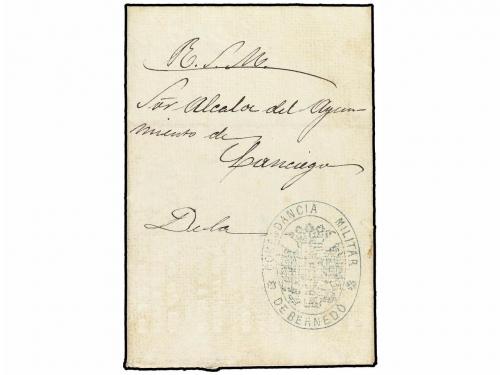 R. S. N.
Sór Alcalde del Ayun-
miento de
Lanciego
De la
COMANDANCIA MILITAR
DE BERNEDO